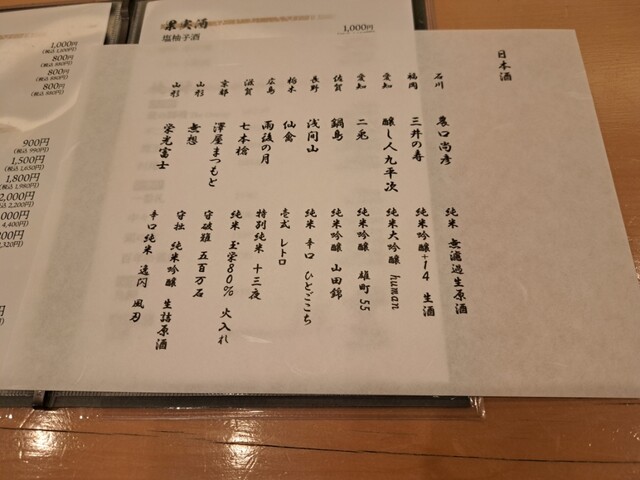 果実酒
塩柚子酒 1,000円
1,000円
(税込 1,100円)
800円
(税込 880円)
800円
(税込 880円)
800円
(税込 880円)
900円
(税込 990円)
1,500円
(税込 1,650円)
1,800円
(税込 1,980円)
2,000円
(税込 2,200円)
000円
4,400円)
日本酒
石川 農口尚彦 純米 無濾過生原酒
福岡 三井の寿 純米吟醸+14 生酒
愛知 醸し人九平次 純米大吟醸 human
愛知 二兎 純米吟醸 雄町55
佐賀 鍋島 純米吟醸 山田錦
長野 浅間山 純米 辛口 ひとごこち
栃木 仙禽 壱式 レトロ
広島 雨後の月 特別純米 十三夜
滋賀 七本槍 純米 玉栄80% 火入れ
京都 澤屋まつもと 守破離 五百万石
山形 無想 守拙 純米吟醸 生詰原酒
山形 栄光冨士 辛口純米 逸閃 風刃